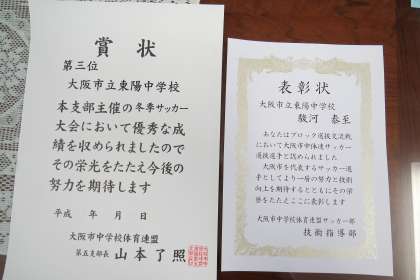 賞状
第三位
大阪市立東陽中学校
本支部主催の冬季サッカー
大会において優秀な成
績を収められましたので
その栄光をたたえ今後の
努力を期待します
平成 年 月 日
大阪市中学校体育連盟
第五支部長 山本了照
表彰状
大阪市立東陽中学校
駿河 泰至
あなたはブロック選抜交流戦
において大阪市中体連サッカー
選抜選手と認められました
大阪市を代表するサッカー選
手としてより一層の努力と技術
向上を期待するとともにその栄
誉をたたえここに表彰します
大阪市中学校体育連盟サッカー部
技術指導部